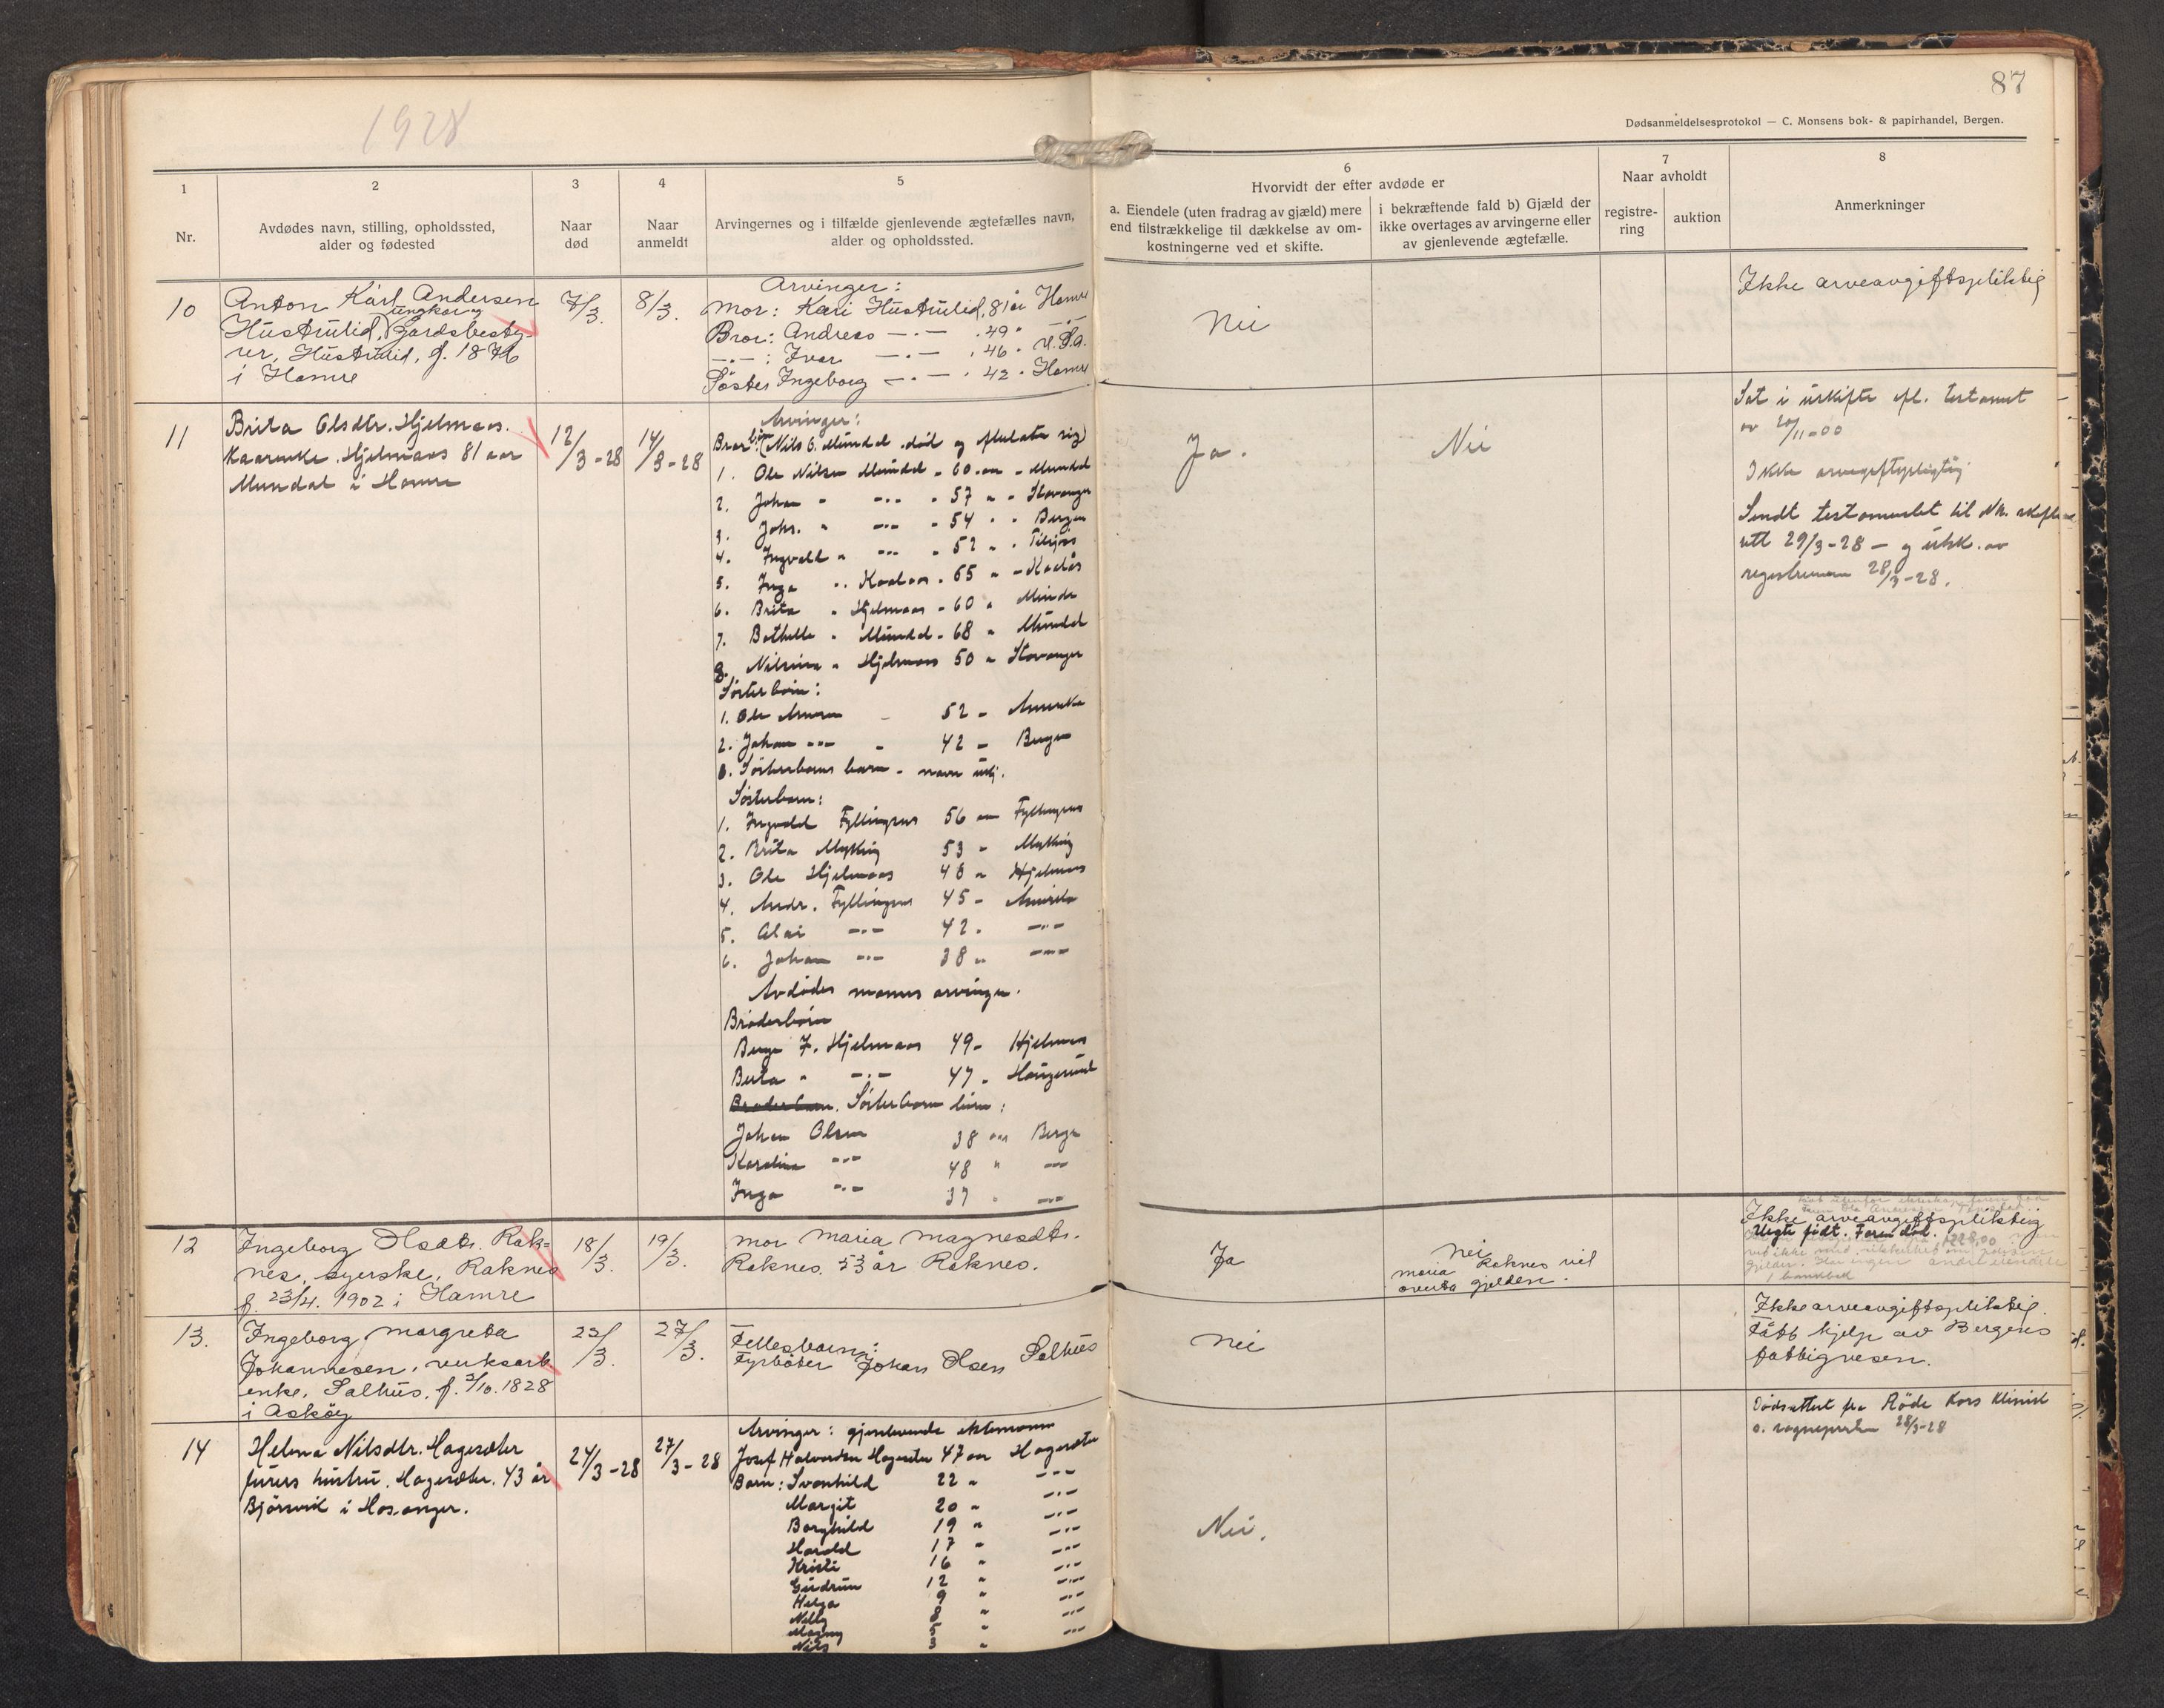 1928
87
Dødsanmeldelsesprotokol — C. Monsens bok- & papirhandel, Bergen.
1
Nr.
2
Avdødes navn, stilling, opholdssted,
alder og fødested
3
Naar
død
4
Naar
anmeldt
5
Arvingernes og i tilfælde gjenlevende ægtefælles navn,
alder og opholdssted.
6
Hvorvidt der efter avdøde er
a. Eiendele (uten fradrag av gjæld) mere
end tilstrækkelige til dækkelse av om-
kostningerne ved et skifte.
i bekræftende fald b) Gjæld der
ikke overtages av arvingerne eller
av gjenlevende ægtefælle.
7
Naar avholdt
registre-
ring
auktion
8
Anmerkninger
10
Anton Karl Andersen
ungkar og
Hustrulid, Gardsbesty-
rer, Hustrulid, f. 1876
i Hamre
7/3.
8/3.
Arvinger:
Mor: Kari Hustrulid, 81 år Hamre
Bror: Andreas —.— . 49 " —.—
—.—: Ivar —.— . 46 .
Søster Ingeborg —.— . 42 . Hamre
Nei
Ikke arveavgiftspliktig
11
Brita Olsdtr. Hjelmaas.
Kaarenke. Hjelmaas 81 aar
Mundal i Hamre
12/3-28
14/3-28
Arvinger:
Brorbørn (Nils O. Mundal død og efterlater sig)
1. Ole Nilsen Mundal - 60 aar - Mundal
2. Johan " -.- " 57 " - Stavanger
3. Johs. " -.- " 54 " " Bergen
4. Ingvald " -.- " 52 " "
5. Inga " Kaalaas . 65 " - Kaalås
6. Brita " Hjelmaas - 60 " Minde
7. Bothilla " Mundal - 68 " Mundal
8. Nilsina " Hjelmaas 50 " Stavanger
Søsterbørn:
1. Ole - 52 - Amerika
2. Johan -.- - 42 - Bergen
3. Søsterbarns barn - navn
Søsterbarn:
1. Ingvald Fyllingsnes 56 aar Fyllingsnes
2. Brita Myking 53 " Myking
3. Ole Hjelmaas 48 " Hjelmaas
4. Andr. Fyllingsnes 45 - Amerika
5. -.- 42 . -.-
6. Johan -.- 38 " -.-
Avdødes manns arvinger.
Broderbørn
Berge J. Hjelmaas 49 - Hjelmaas
Berta " -.- 47 - Haugesund
Broderbarn. Søsterbarn børn:
Johan Olsen 38 aar Bergen
Karolina -.- 48 " -.-
Inga -.- 37 " -.-
Ja.
Nei
Sat i uskifte efl. testament
av 20/11-00
Ikke arveavgiftspligtig.
Sendt testamentet til Nh. skifte
rett 29/3-28 — og utsk. av
registreringen 28/3-28.
12
Ingeborg Olsdtr. Rak-
nes, syerske, Raknes
f. 23/4. 1902 i Hamre
18/3.
19/3.
Mor Maria Magnesdtr.
Raknes. 53 år Raknes.
Ja
Nei
Maria Raknes vil
overta gjelden.
Ikke arveavgiftspliktig
Uegte født. Faren død.
13.
Ingeborg Margreta
Johannesen, verksarb.
enke, Salhus, f. 3/10. 1828
i Askøy
23/3.
27/3.
Fellesbarn:
Fyrbøter Johan Olsen Salhus
Nei
Ikke arveavgiftspliktig.
Fått hjelp av Bergens
fattigvesen.
14
Helena Nilsdtr. Hagesæter
furers hustru. Hagesæter. 43 år
Bjørsvik i Hosanger.
24/3-28
27/3-28
Arvinger: gjenlevende ektemann
Josef Halvorsen Hagesæter 47 aar Hagesæter
Barn: Svanhild 22 " -.-
Margit 20 " -.-
Borghild 19 " -.-
Harald 17 " -.-
Kristi 16 " -.-
Gudrun 12 " -.-
Helga 9 " -.-
Nelly 8 " -.-
Magny 5 " -.-
Nils 3 "
Nei.
Dødsattest fra Røde Kors Klinik
o. sognepresten 28/3-28